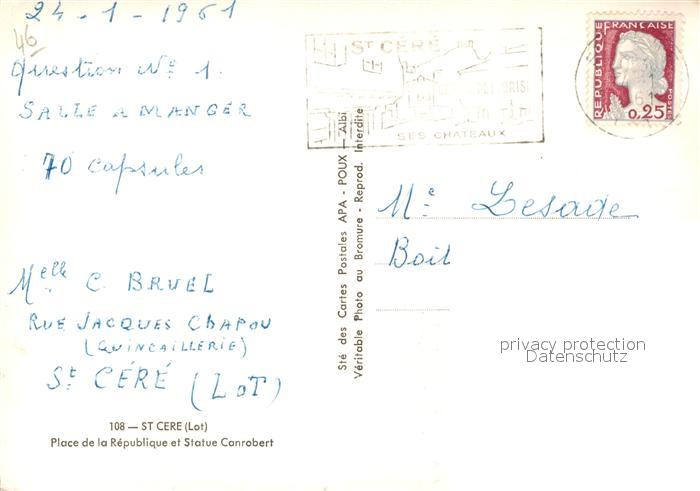 24-1-1961
46
Question N° 1.
SALLE A MANGER
70 capsules
Melle C. BRUEL
RUE JACQUES CHAPOU
(QUINCAILLERIE)
St CÉRÉ (LOT)
108 — ST CERE (Lot)
Place de la République et Statue Canrobert
Sté des Cartes Postales APA - POUX — Albi
Véritable Photo au Bromure - Reprod. Interdite
ST CÉRÉ
SES CHATEAUX
REPUBLIQUE FRANÇAISE
POSTES
0,25
Me Lesage
Boit
privacy protection
Datenschutz